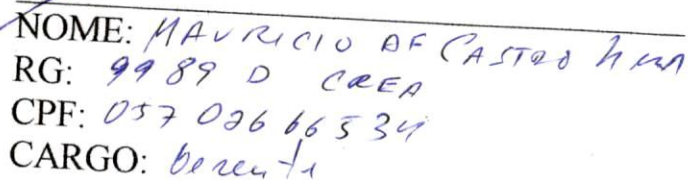 NOME: MAURICIO DE CASTRO
RG: 9989 D CREA
CPF: 057 026 665 34
CARGO: Gerente